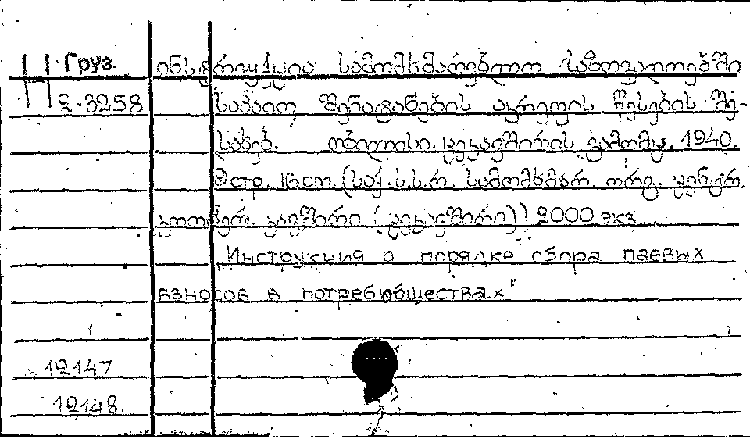 Н Груз. ინსტრუქცია სამომხმარებლო საზოგადოებში
2-3258 საპაიო შენატანების აკრეფის წესების შე-
სახებ. თბილისი. ცეკავშირის გამომც. 1940.
გვ. 16 ст. (საქ. ს.ს.რ. სამომხმარ. ორგ. ცენტრ.
კოოპერ. კავშირი (ცეკავშირი)) 2000 экз.
"Инструкция о порядке сбора паевых
взносов в потребобществах"
12147
12148.